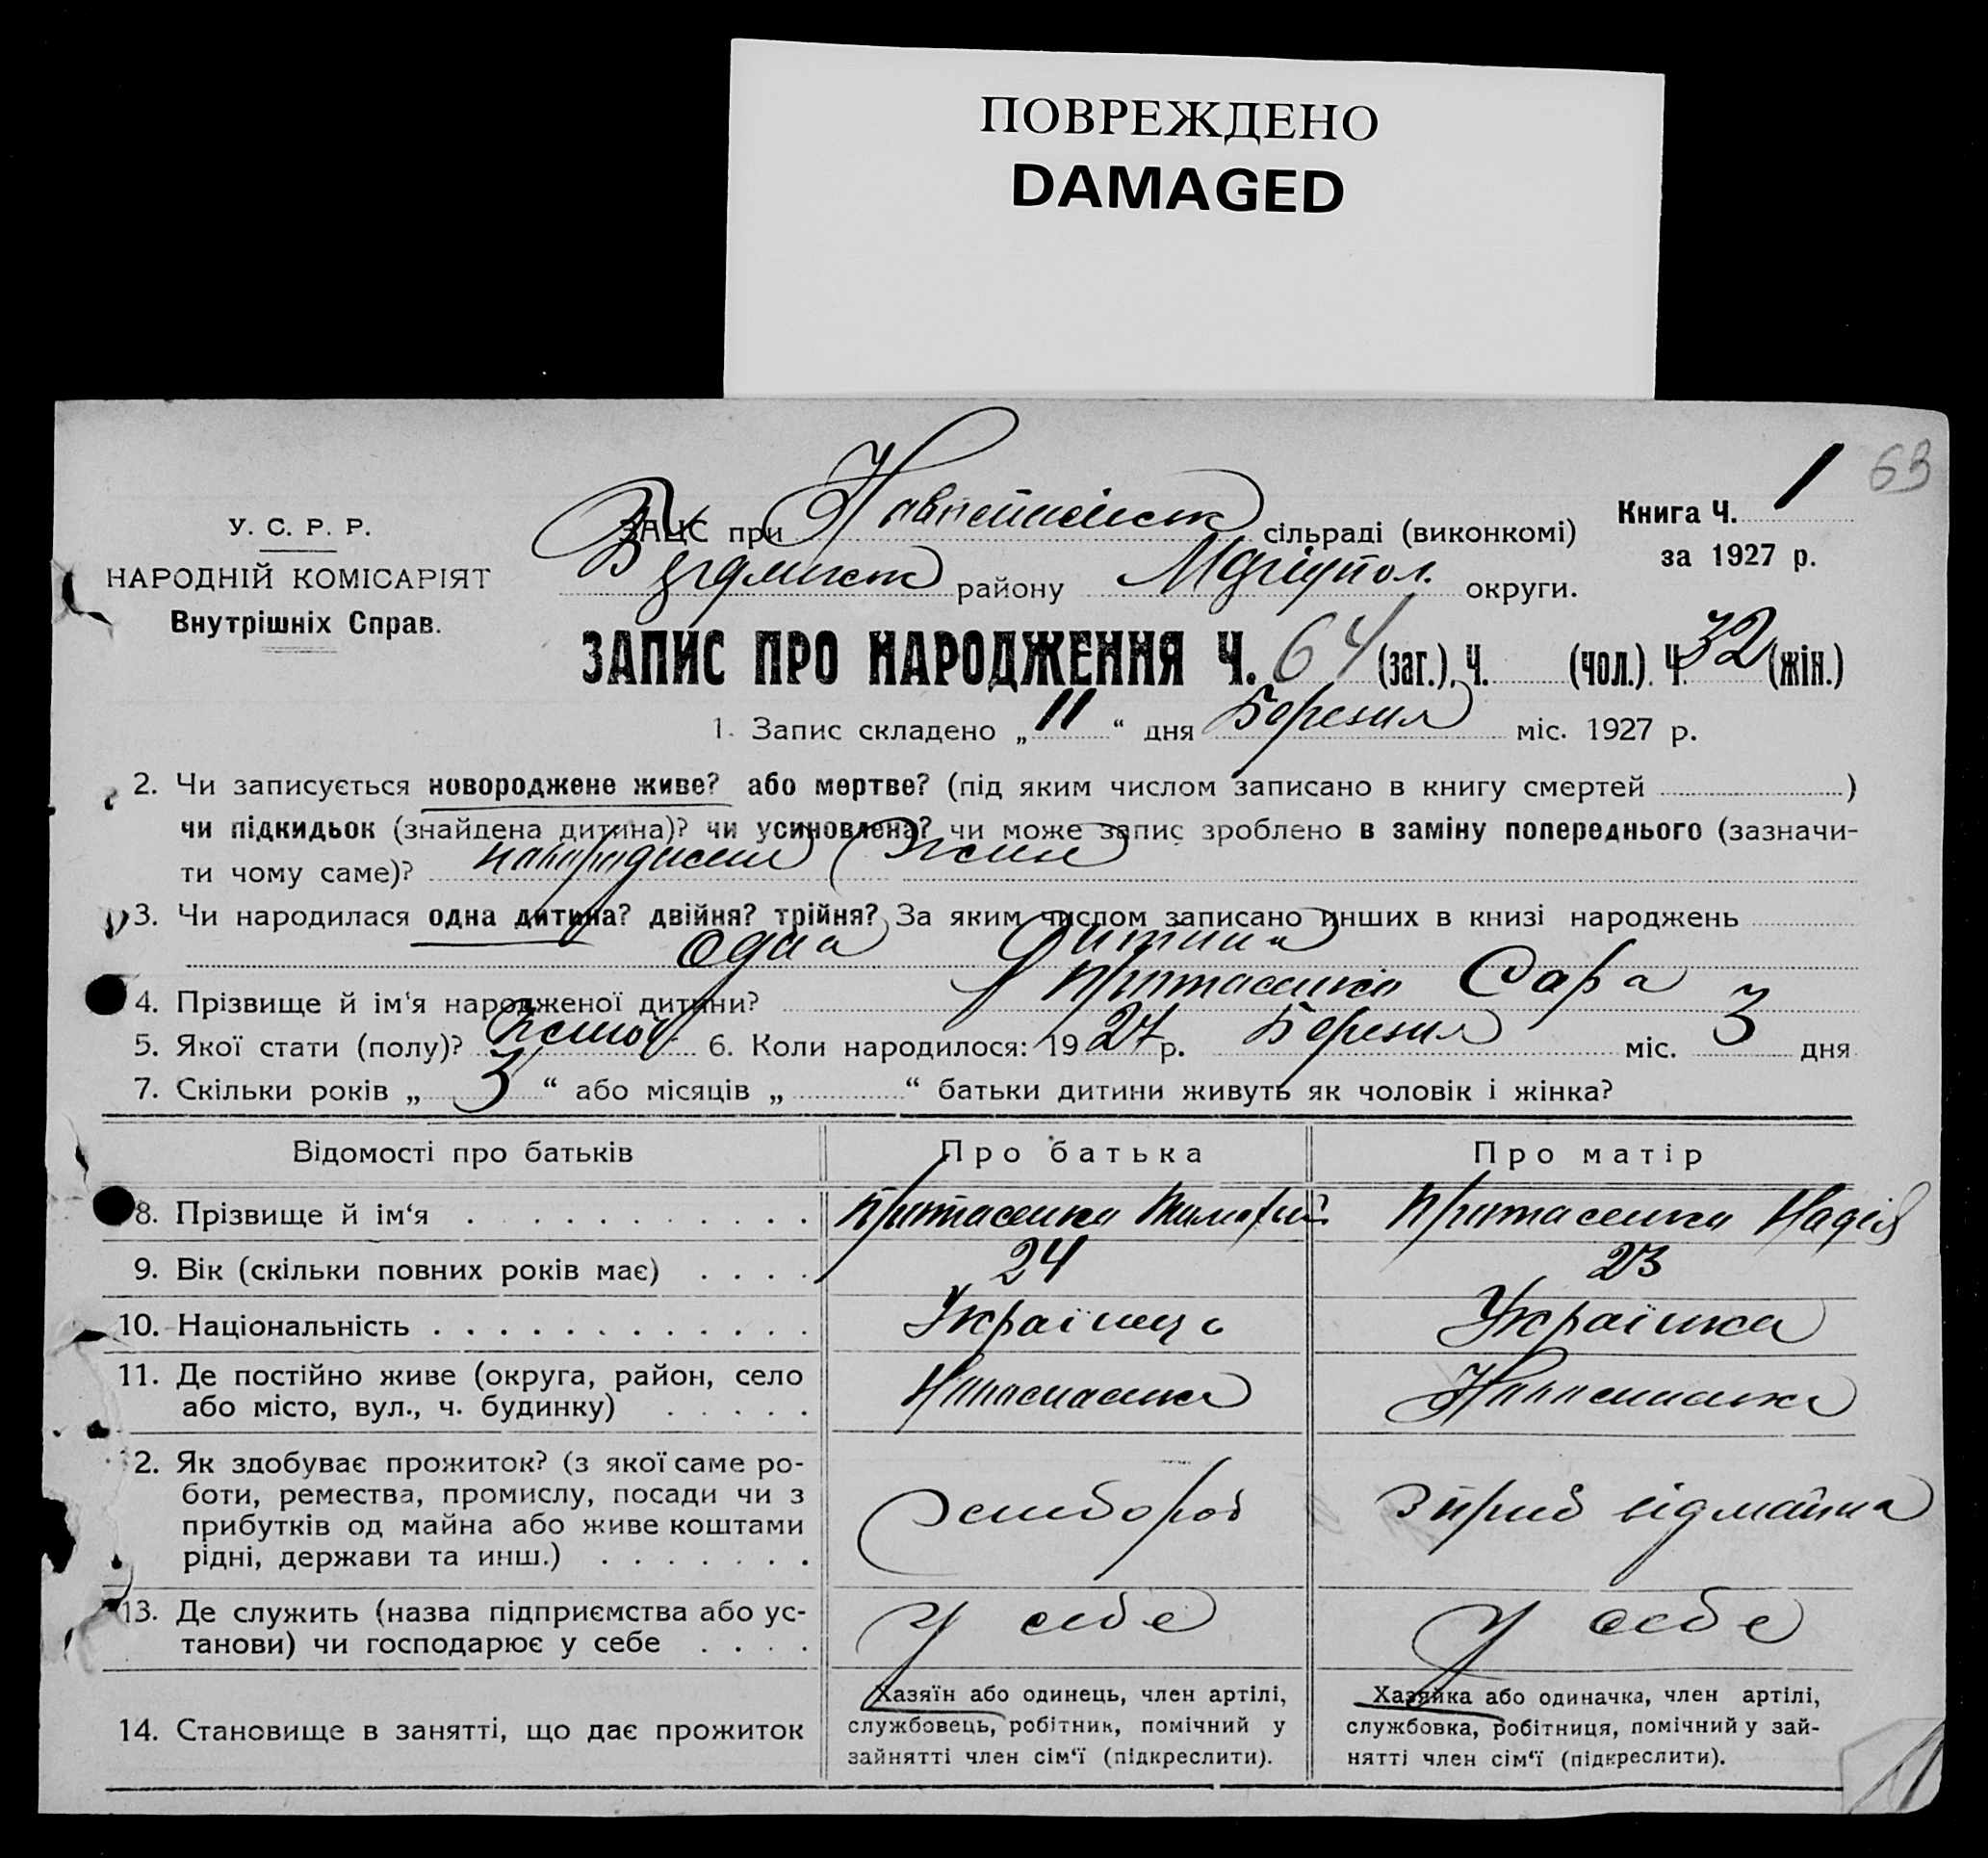 ПОВРЕЖДЕНО
DAMAGED
63
У. С. Р. Р.
НАРОДНІЙ КОМІСАРІЯТ
Внутрішніх Справ.
ЗАЦС при сільраді (виконкомі)
району Маріупол. округи.
Книга Ч. 1
за 1927 р.
ЗАПИС ПРО НАРОДЖЕННЯ Ч. 64 (заг.). Ч. (чол.). Ч. 32 (жін.)
1. Запис складено „ 11 “ дня Березня міс. 1927 р.
2. Чи записується новороджене живе? або мертве? (під яким числом записано в книгу смертей )
чи підкидьок (знайдена дитина)? чи усиновлена? чи може запис зроблено в заміну попереднього (зазначи-
ти чому саме)?
3. Чи народилася одна дитина? двійня? трійня? За яким числом записано инших в книзі народжень
одна дитина
4. Прізвище й ім‘я народженої дитини? Притасенко Сара
5. Якої стати (полу)? 6. Коли народилося: 1927 р. Березня міс. 3 дня
7. Скільки років „ 3 “ або місяців „ “ батьки дитини живуть як чоловік і жінка?
Відомості про батьків Про батька Про матір
8. Прізвище й ім‘я Притасенко Притасенко Надія
9. Вік (скільки повних років має) 24 23
10. Національність Українець Українка
11. Де постійно живе (округа, район, село
або місто, вул., ч. будинку)
12. Як здобуває прожиток? (з якої саме ро-
боти, ремества, промислу, посади чи з
прибутків од майна або живе коштами
рідні, держави та инш.)
хлібороб з приб від майна
13. Де служить (назва підприємства або ус-
танови) чи господарює у себе
у себе у себе
14. Становище в занятті, що дає прожиток
Хазяїн або одинець, член артілі,
службовець, робітник, помічний у
зайнятті член сім‘ї (підкреслити).
Хазяйка або одиначка, член артілі,
службовка, робітниця, помічний у зай-
нятті член сім‘ї (підкреслити).